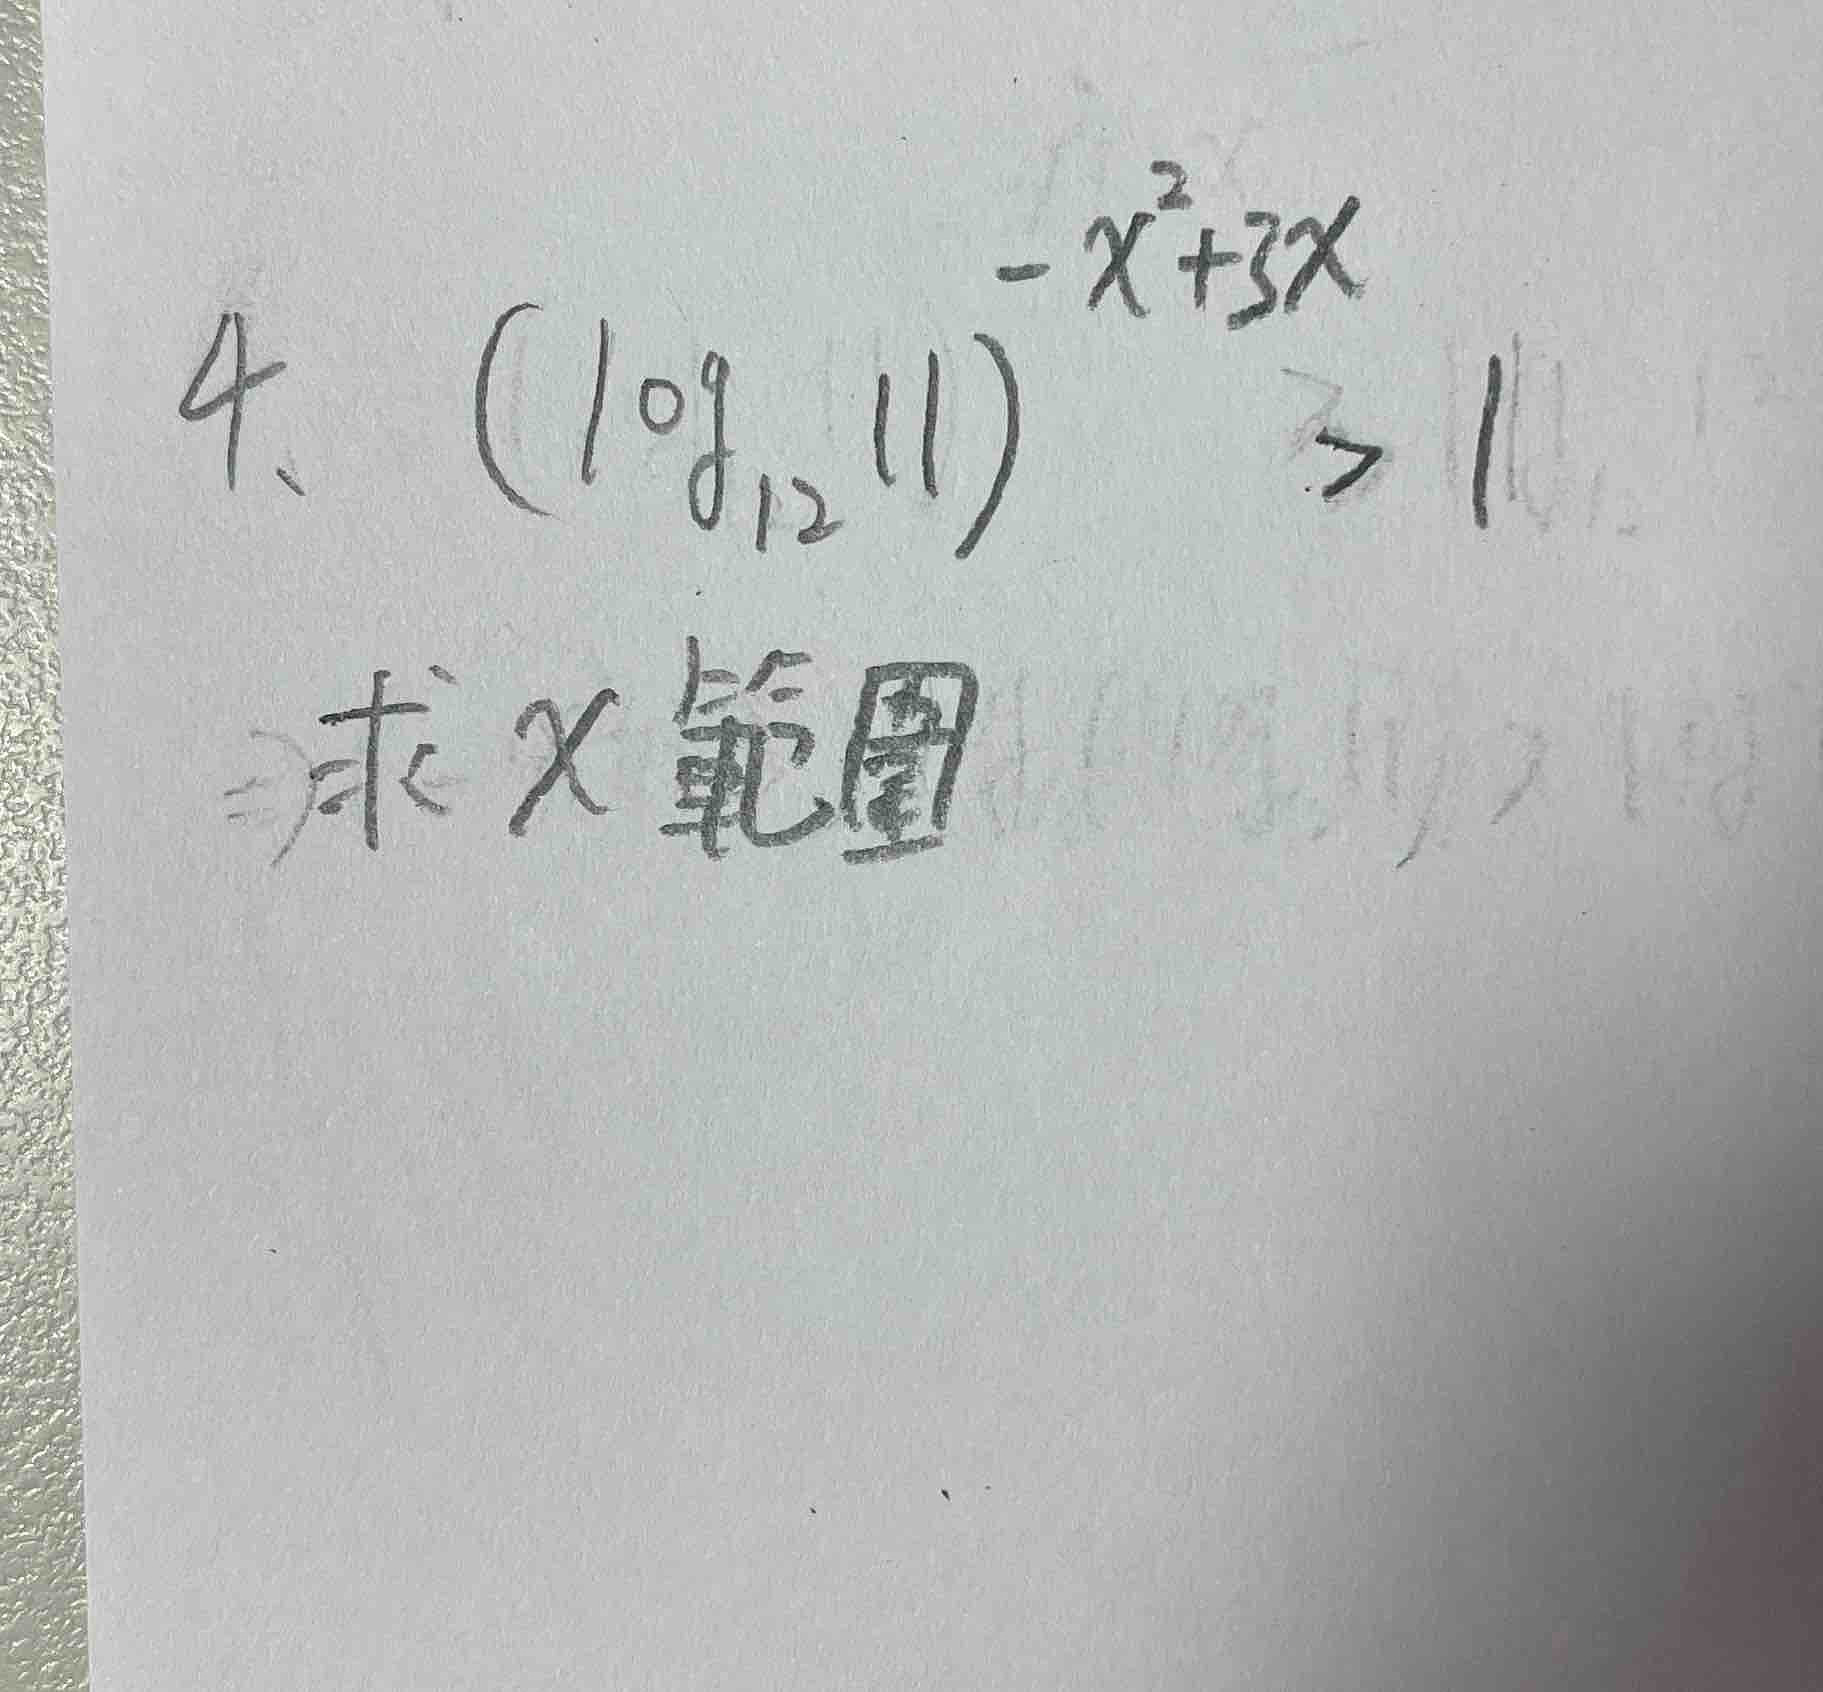 4、 (log₁₂ 11)^(-x²+3x) > 1
求 x 範圍